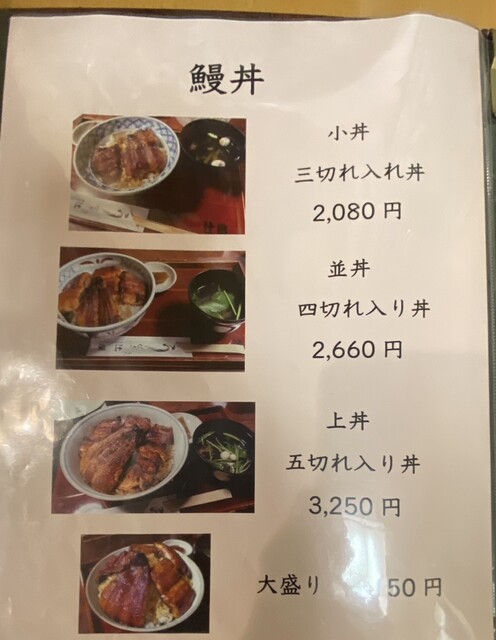 鰻丼
小丼
三切れ入れ丼
2,080 円
並丼
四切れ入り丼
2,660 円
上丼
五切れ入り丼
3,250 円
大盛り 50 円